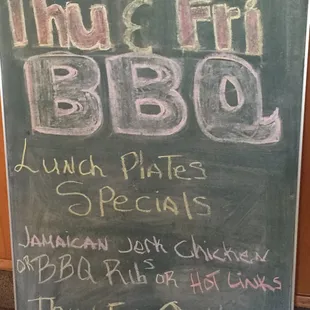 Thu & Fri
BBQ
Lunch Plates
Specials
Jamaican Jerk Chicken
or BBQ Ribs or Hot Links